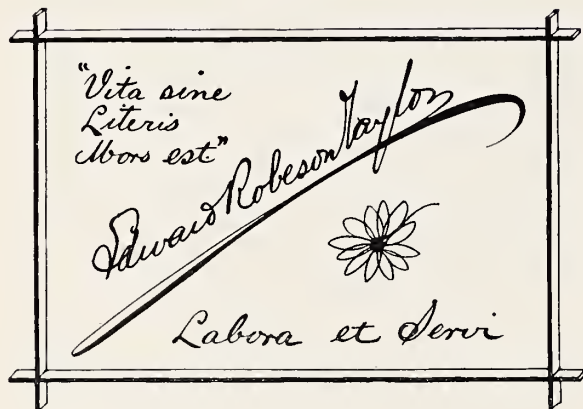 "Vita sine
Literis
Mors est"
Edward Robeson Taylor
Labora et Servi